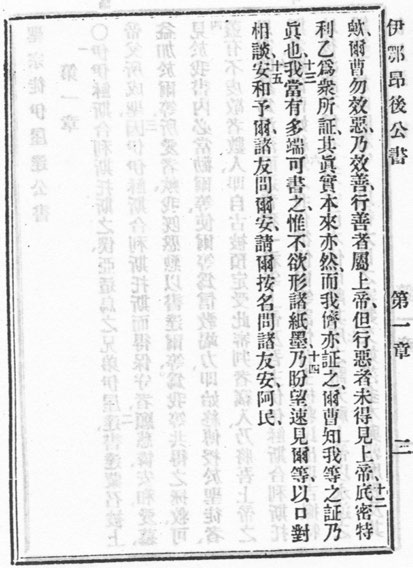 伊鄂昂後公書 第一章 三
歟、爾曹勿效惡、乃效善、行善者屬上帝、但行惡者未得見上帝、十二底密特
利乙爲衆所証、其眞實本來亦然、而我儕亦証之、爾曹知我等之証乃
眞也、十三我當有多端可書之、惟不欲形諸紙墨、十四乃盼望速見爾等、以口對
相談、十五安和予爾、諸友問爾安、請爾按名問諸友安、阿民、